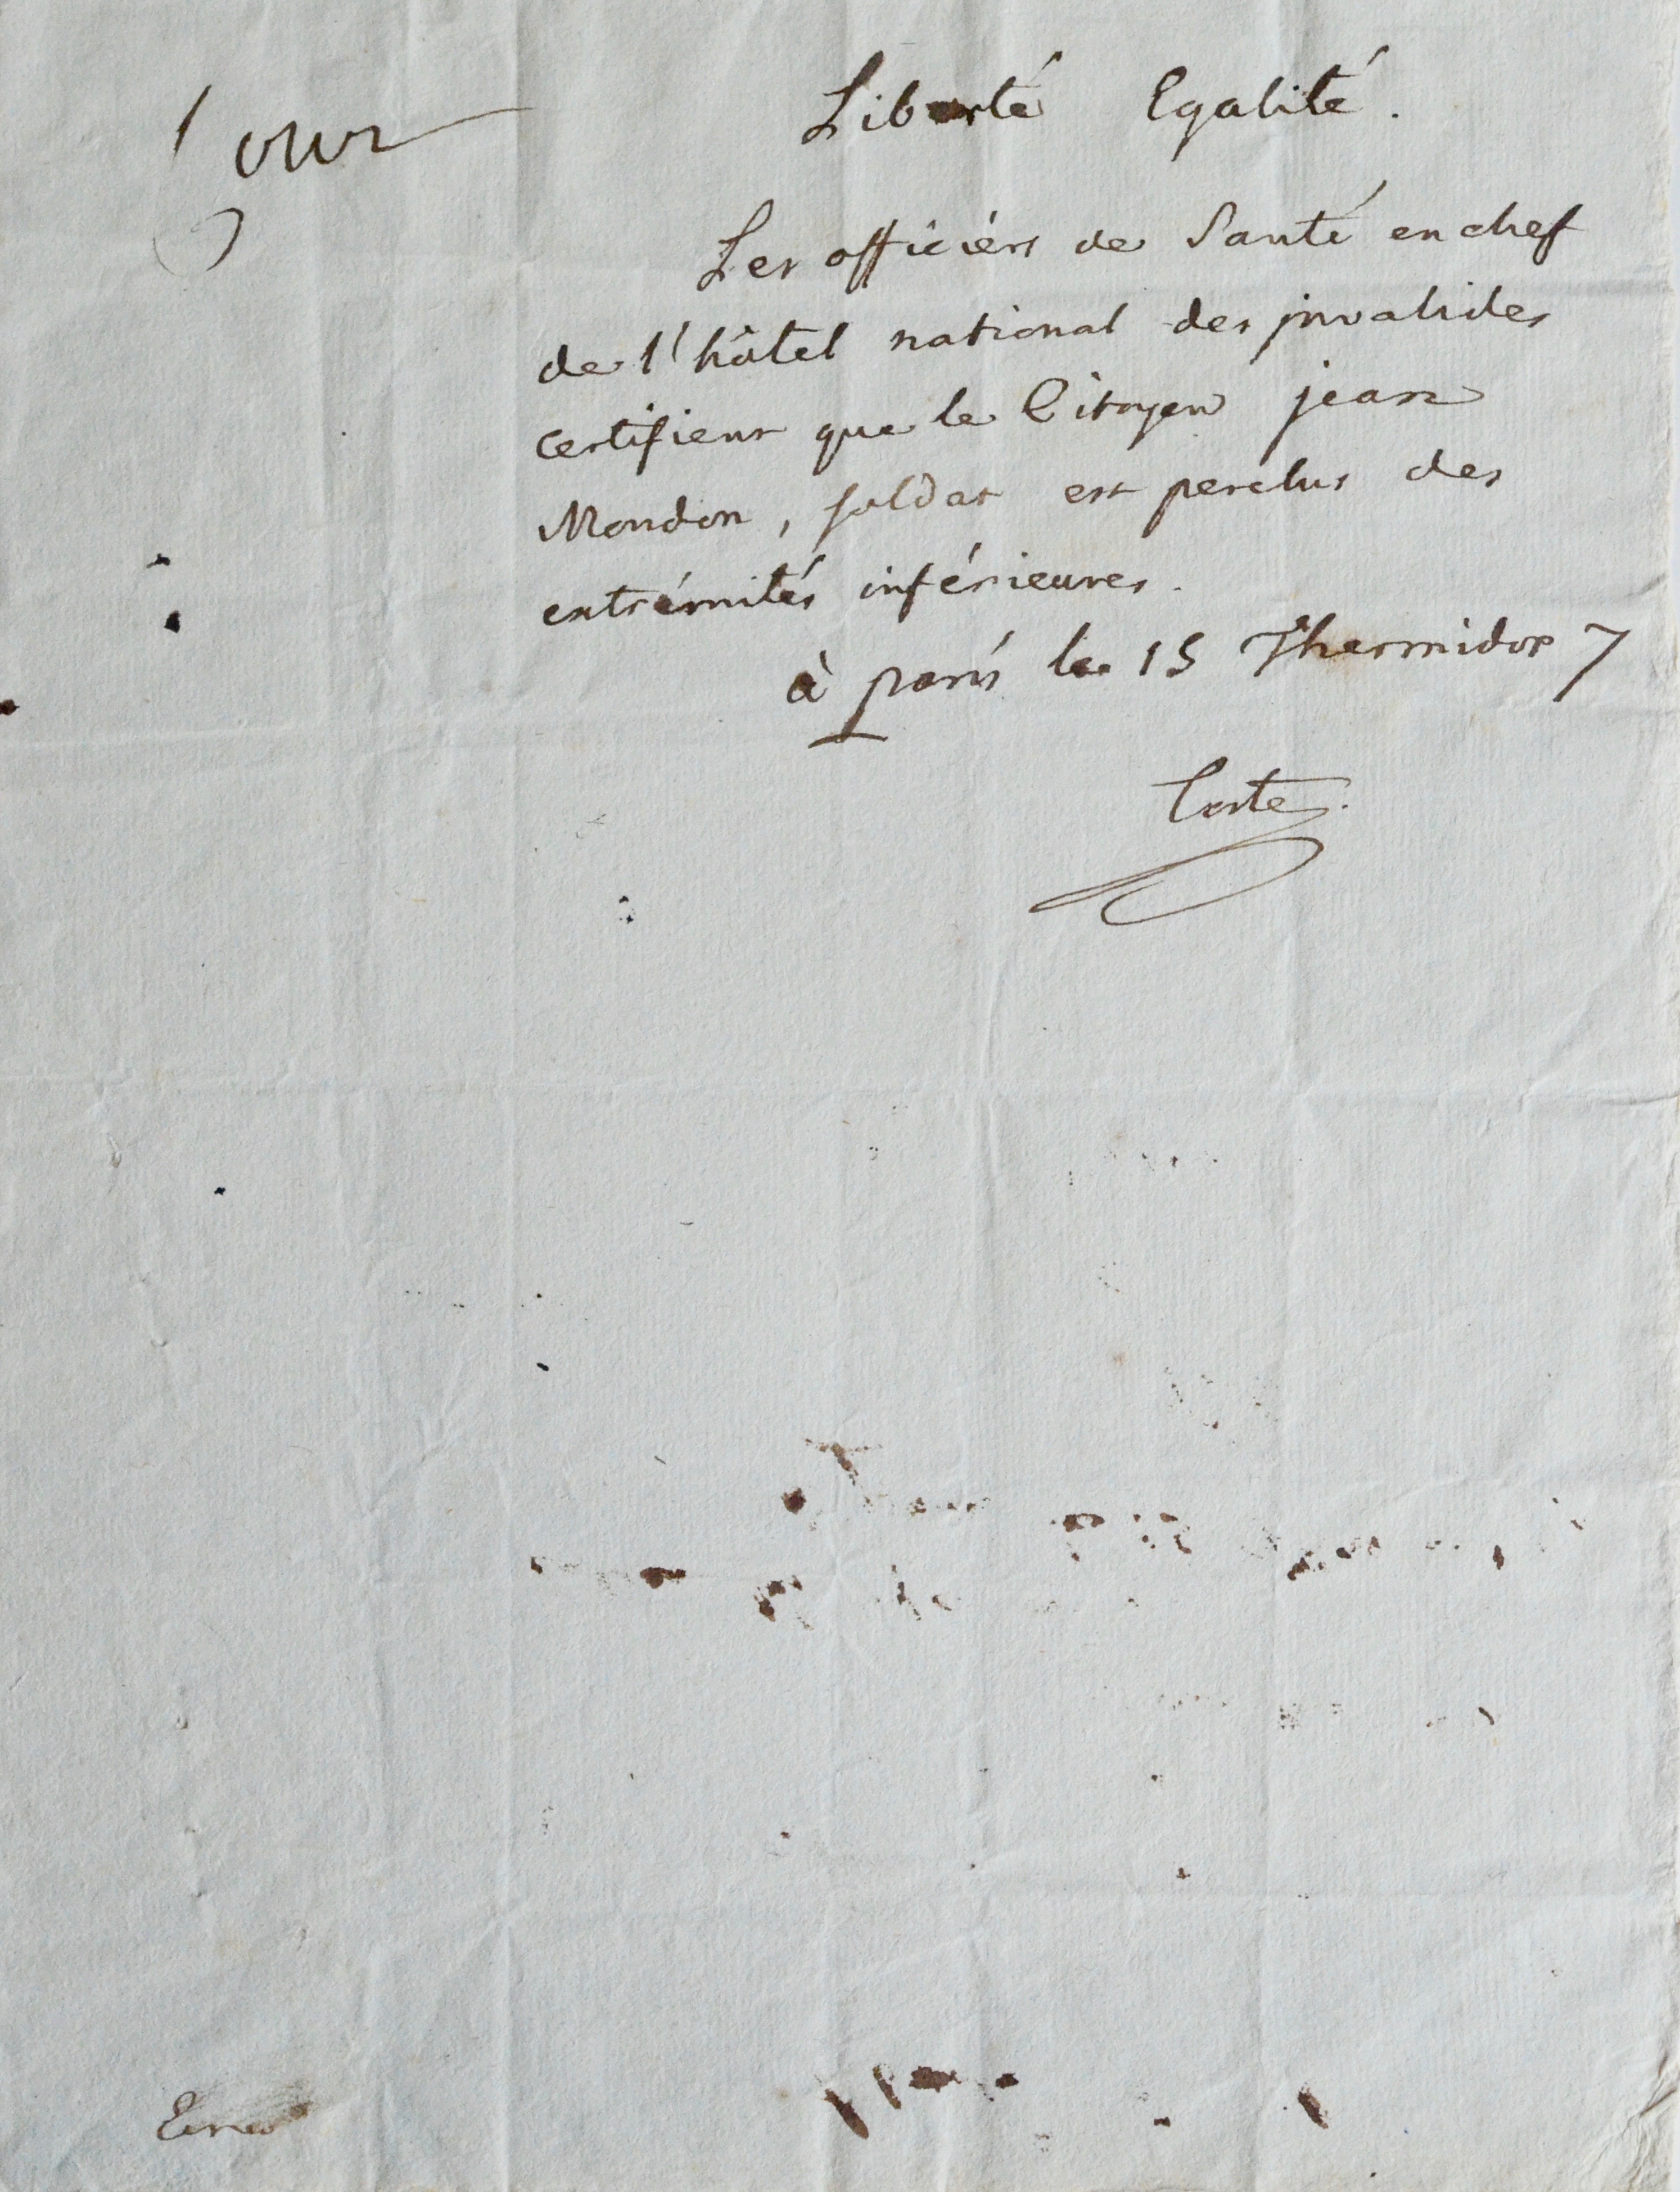 Liberté Egalité.
Les officiérs de Santé en chef
de l'hôtel national des jnvalides
certifient que le Citoyen jean
Mondon, soldat est perclus des
extrémités inférieures.
à paris le 15 Thermidor 7
Coste